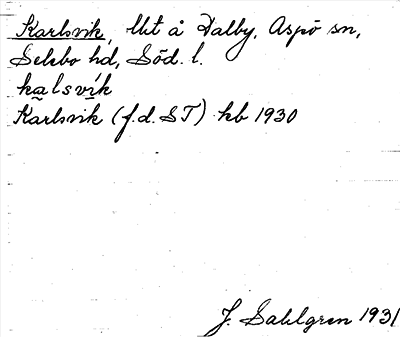 Karlsvik, lht å Dalby, Aspö sn,
Selebo hd, Söd. l.
ka̰lsvík
Karlsvik (f.d. ST) kb 1930
J. Sahlgren 1931